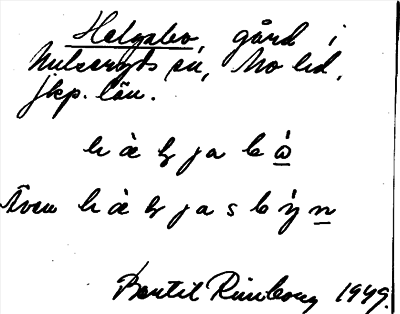 Helgabo, gård i
Hulseryds sn, Mo hd,
jkp. län.
h à lg ja b ó
Även h à lg ja s b ý n
Bertil Rimborg 1949.